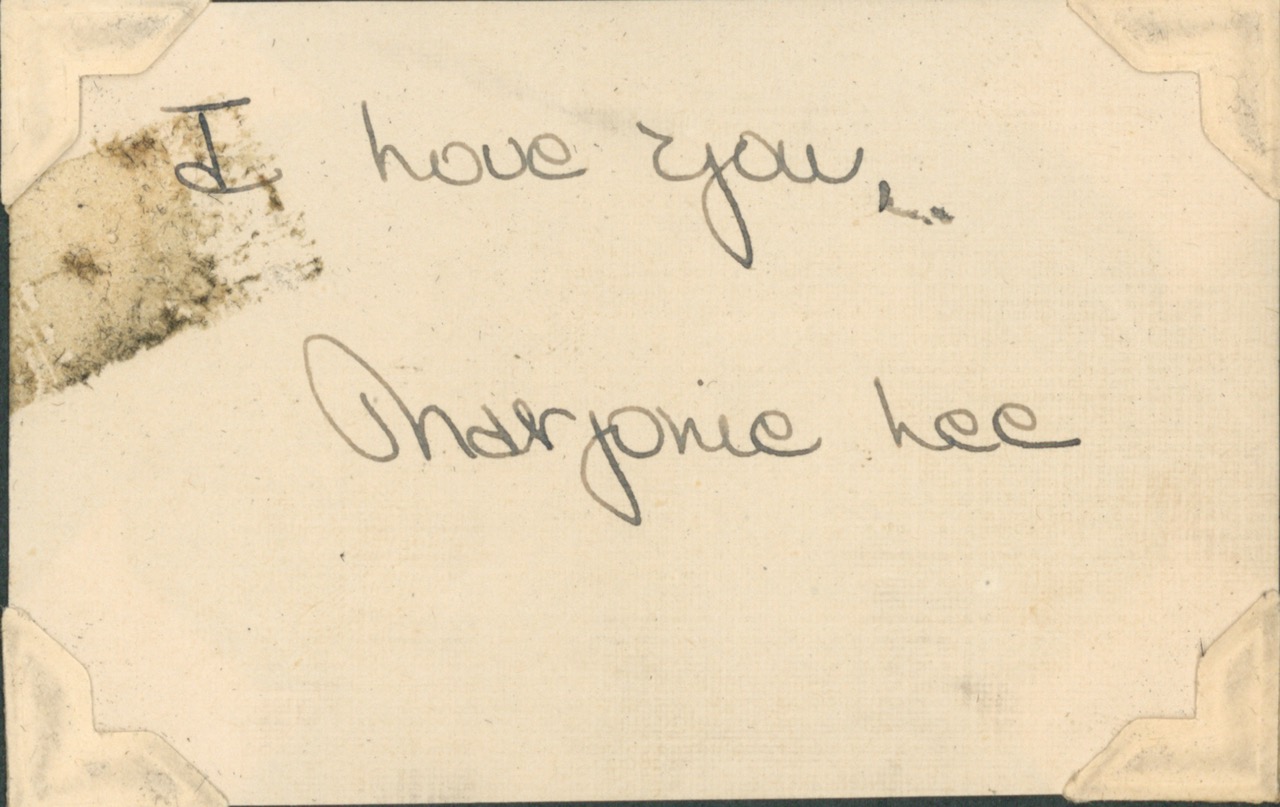 I love you.
Marjorie Lee